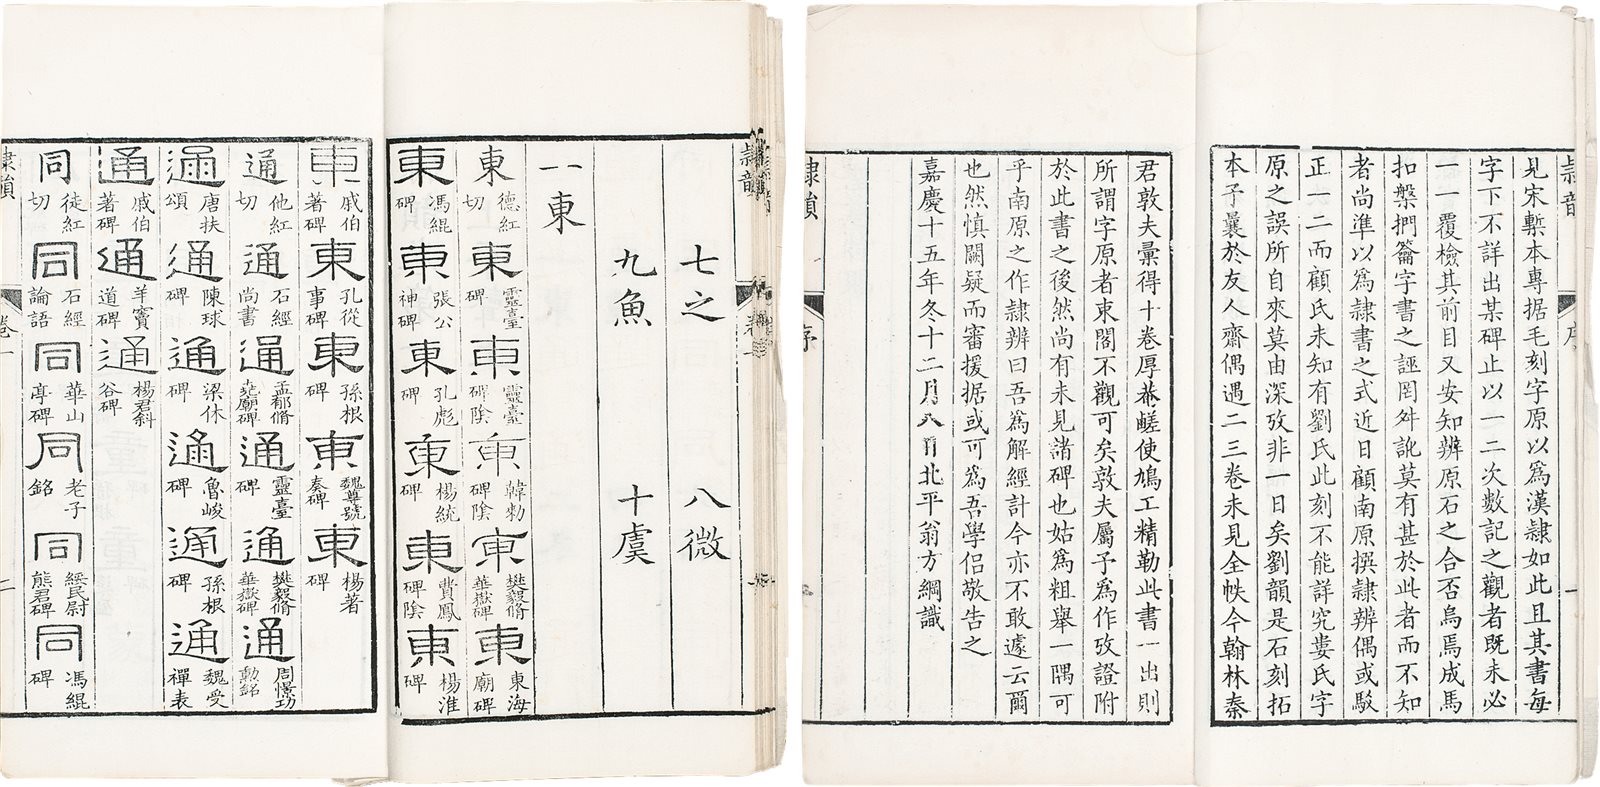 隸韻
七之
八微
九魚
十虞
一東
東 德紅切 東 靈臺碑 東 靈臺碑陰 東 韓勑碑陰 東 樊毅脩華嶽碑 東 東海廟碑
東 馮緄碑 東 張公神碑 東 孔彪碑 東 楊統碑 東 費鳳碑陰 東 楊淮
東 戚伯著碑 東 孔從事碑 東 孫根碑 東 魏尊號奏碑 東 楊著碑
通 他紅切 通 石經尚書 通 孟郁脩堯廟碑 通 靈臺碑 通 樊毅脩華嶽碑 通 周憬功勳銘
通 唐扶頌 通 陳球碑 通 梁休碑 通 魯峻碑 通 孫根碑 通 魏受禪表
通 戚伯著碑 通 羊竇道碑 通 楊君斜谷碑
同 徒紅切 同 石經論語 同 華山亭碑 同 老子銘 同 綏民尉熊君碑 同 馮緄碑
隸韻 卷一 二
隸韻 序 一
見宋槧本專据毛刻字原以為漢隸如此且其書每
字下不詳出某碑止以一二次數記之觀者既未必
一一覆檢其前目又安知辨原石之合否烏焉成馬
扣槃捫籥字書之誣罔舛訛莫有甚於此者而不知
者尚準以為隸書之式近日顧南原撰隸辨偶或駮
正一二而顧氏未知有劉氏此刻不能詳究婁氏字
原之誤所自來莫由深攷非一日矣劉韻是石刻拓
本予曩於友人齋偶遇二三卷未見全帙今翰林秦
君敦夫彙得十卷厚菴鹺使鳩工精勒此書一出則
所謂字原者束閣不觀可矣敦夫屬予為作攷證附
於此書之後然尚有未見諸碑也姑為粗舉一隅可
乎南原之作隸辨曰吾為解經計今亦不敢遽云爾
也然慎闕疑而審援据或可為吾學侶敬告之
嘉慶十五年冬十二月八日北平翁方綱識
隸韻 序